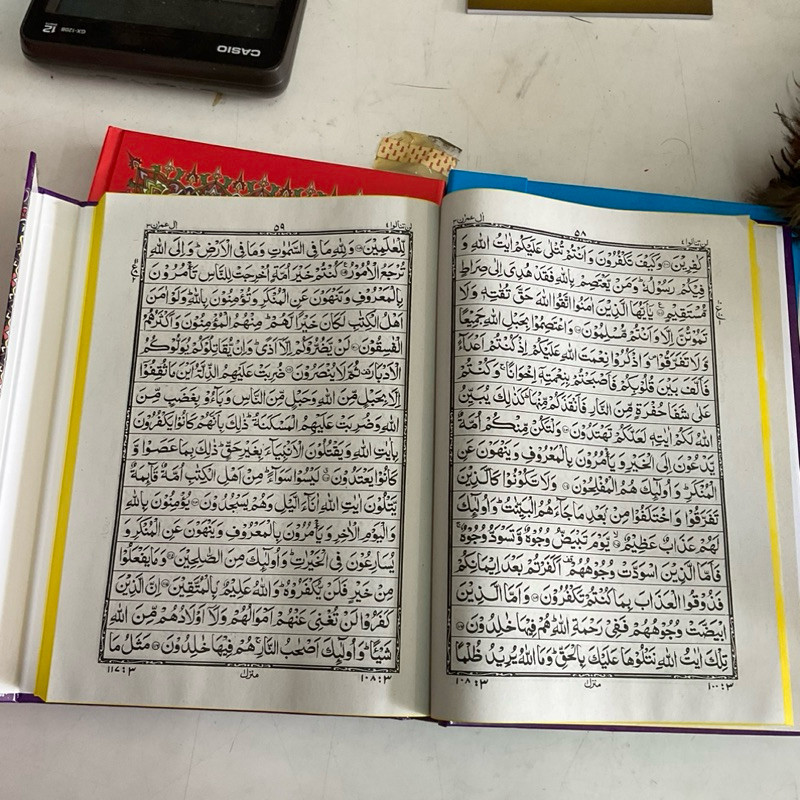 لن تنالوا٤ ٥٨ اٰل عمرٰن٣
كٰفِرِيْنَ ۝ وَكَيْفَ تَكْفُرُوْنَ وَاَنْتُمْ تُتْلٰى عَلَيْكُمْ اٰيٰتُ اللّٰهِ وَ
فِيْكُمْ رَسُوْلُهٗ ؕ وَمَنْ يَّعْتَصِمْ بِاللّٰهِ فَقَدْ هُدِىَ اِلٰى صِرَاطٍ
مُّسْتَقِيْمٍ ۝ يٰۤاَيُّهَا الَّذِيْنَ اٰمَنُوا اتَّقُوا اللّٰهَ حَقَّ تُقٰتِهٖ وَلَا
تَمُوْتُنَّ اِلَّا وَاَنْتُمْ مُّسْلِمُوْنَ ۝ وَاعْتَصِمُوْا بِحَبْلِ اللّٰهِ جَمِيْعًا
وَّلَا تَفَرَّقُوْا ۪ وَاذْكُرُوْا نِعْمَتَ اللّٰهِ عَلَيْكُمْ اِذْ كُنْتُمْ اَعْدَآءً
فَاَلَّفَ بَيْنَ قُلُوْبِكُمْ فَاَصْبَحْتُمْ بِنِعْمَتِهٖۤ اِخْوَانًا ۚ وَكُنْتُمْ
عَلٰى شَفَا حُفْرَةٍ مِّنَ النَّارِ فَاَنْقَذَكُمْ مِّنْهَا ؕ كَذٰلِكَ يُبَيِّنُ
اللّٰهُ لَكُمْ اٰيٰتِهٖ لَعَلَّكُمْ تَهْتَدُوْنَ ۝ وَلْتَكُنْ مِّنْكُمْ اُمَّةٌ
يَّدْعُوْنَ اِلَى الْخَيْرِ وَيَاْمُرُوْنَ بِالْمَعْرُوْفِ وَيَنْهَوْنَ عَنِ
الْمُنْكَرِ ؕ وَاُولٰٓئِكَ هُمُ الْمُفْلِحُوْنَ ۝ وَلَا تَكُوْنُوْا كَالَّذِيْنَ
تَفَرَّقُوْا وَاخْتَلَفُوْا مِنْۢ بَعْدِ مَا جَآءَهُمُ الْبَيِّنٰتُ ؕ وَاُولٰٓئِكَ
لَهُمْ عَذَابٌ عَظِيْمٌ ۝ يَّوْمَ تَبْيَضُّ وُجُوْهٌ وَّتَسْوَدُّ وُجُوْهٌ ۚ
فَاَمَّا الَّذِيْنَ اسْوَدَّتْ وُجُوْهُهُمْ ۟ اَكَفَرْتُمْ بَعْدَ اِيْمَانِكُمْ
فَذُوْقُوا الْعَذَابَ بِمَا كُنْتُمْ تَكْفُرُوْنَ ۝ وَاَمَّا الَّذِيْنَ
ابْيَضَّتْ وُجُوْهُهُمْ فَفِىْ رَحْمَةِ اللّٰهِ ؕ هُمْ فِيْهَا خٰلِدُوْنَ ۝
تِلْكَ اٰيٰتُ اللّٰهِ نَتْلُوْهَا عَلَيْكَ بِالْحَقِّ ؕ وَمَا اللّٰهُ يُرِيْدُ ظُلْمًا
١٠٠:٣ منزل ١٠٨:٣
لن تنالوا٤ ٥٩ اٰل عمرٰن٣
لِّلْعٰلَمِيْنَ ۝ وَلِلّٰهِ مَا فِى السَّمٰوٰتِ وَمَا فِى الْاَرْضِ ؕ وَاِلَى اللّٰهِ
تُرْجَعُ الْاُمُوْرُ ۝ كُنْتُمْ خَيْرَ اُمَّةٍ اُخْرِجَتْ لِلنَّاسِ تَاْمُرُوْنَ
بِالْمَعْرُوْفِ وَتَنْهَوْنَ عَنِ الْمُنْكَرِ وَتُؤْمِنُوْنَ بِاللّٰهِ ؕ وَلَوْ اٰمَنَ
اَهْلُ الْكِتٰبِ لَكَانَ خَيْرًا لَّهُمْ ؕ مِنْهُمُ الْمُؤْمِنُوْنَ وَاَكْثَرُهُمُ
الْفٰسِقُوْنَ ۝ لَنْ يَّضُرُّوْكُمْ اِلَّاۤ اَذًى ؕ وَاِنْ يُّقَاتِلُوْكُمْ يُوَلُّوْكُمُ
الْاَدْبَارَ ۟ ثُمَّ لَا يُنْصَرُوْنَ ۝ ضُرِبَتْ عَلَيْهِمُ الذِّلَّةُ اَيْنَ مَا ثُقِفُوْۤا
اِلَّا بِحَبْلٍ مِّنَ اللّٰهِ وَحَبْلٍ مِّنَ النَّاسِ وَبَآءُوْ بِغَضَبٍ مِّنَ
اللّٰهِ وَضُرِبَتْ عَلَيْهِمُ الْمَسْكَنَةُ ؕ ذٰلِكَ بِاَنَّهُمْ كَانُوْا يَكْفُرُوْنَ
بِاٰيٰتِ اللّٰهِ وَيَقْتُلُوْنَ الْاَنْۢبِيَآءَ بِغَيْرِ حَقٍّ ؕ ذٰلِكَ بِمَا عَصَوْا وَّ
كَانُوْا يَعْتَدُوْنَ ۝ لَيْسُوْا سَوَآءً ؕ مِنْ اَهْلِ الْكِتٰبِ اُمَّةٌ قَآئِمَةٌ
يَّتْلُوْنَ اٰيٰتِ اللّٰهِ اٰنَآءَ الَّيْلِ وَهُمْ يَسْجُدُوْنَ ۝ يُؤْمِنُوْنَ بِاللّٰهِ
وَالْيَوْمِ الْاٰخِرِ وَيَاْمُرُوْنَ بِالْمَعْرُوْفِ وَيَنْهَوْنَ عَنِ الْمُنْكَرِ وَ
يُسَارِعُوْنَ فِى الْخَيْرٰتِ ؕ وَاُولٰٓئِكَ مِنَ الصّٰلِحِيْنَ ۝ وَمَا يَفْعَلُوْا
مِنْ خَيْرٍ فَلَنْ يُّكْفَرُوْهُ ؕ وَاللّٰهُ عَلِيْمٌۢ بِالْمُتَّقِيْنَ ۝ اِنَّ الَّذِيْنَ
كَفَرُوْا لَنْ تُغْنِىَ عَنْهُمْ اَمْوَالُهُمْ وَلَاۤ اَوْلَادُهُمْ مِّنَ اللّٰهِ
شَيْئًا ؕ وَاُولٰٓئِكَ اَصْحٰبُ النَّارِ ۚ هُمْ فِيْهَا خٰلِدُوْنَ ۝ مَثَلُ مَا
١٠٨:٣ منزل ١١٧:٣
CASIO
GX-120B
12